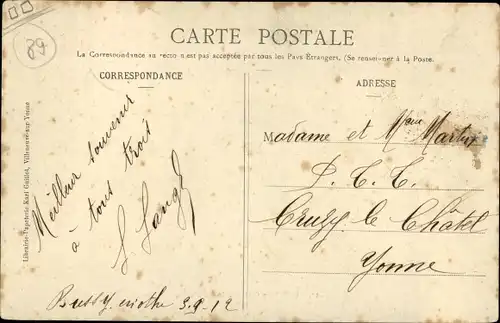 89
CARTE POSTALE
La Correspondance au recto n'est pas acceptée par tous les Pays Étrangers, (Se renseigner à la Poste.
CORRESPONDANCE
ADRESSE
Librairie-Papeterie Karl Guillot, Villeneuve-sur-Yonne
Meilleur souvenir
à tous trois
Madame et Martin
P. C. T.
Cruzy le Châtel
Yonne
Bussy 3.9.12